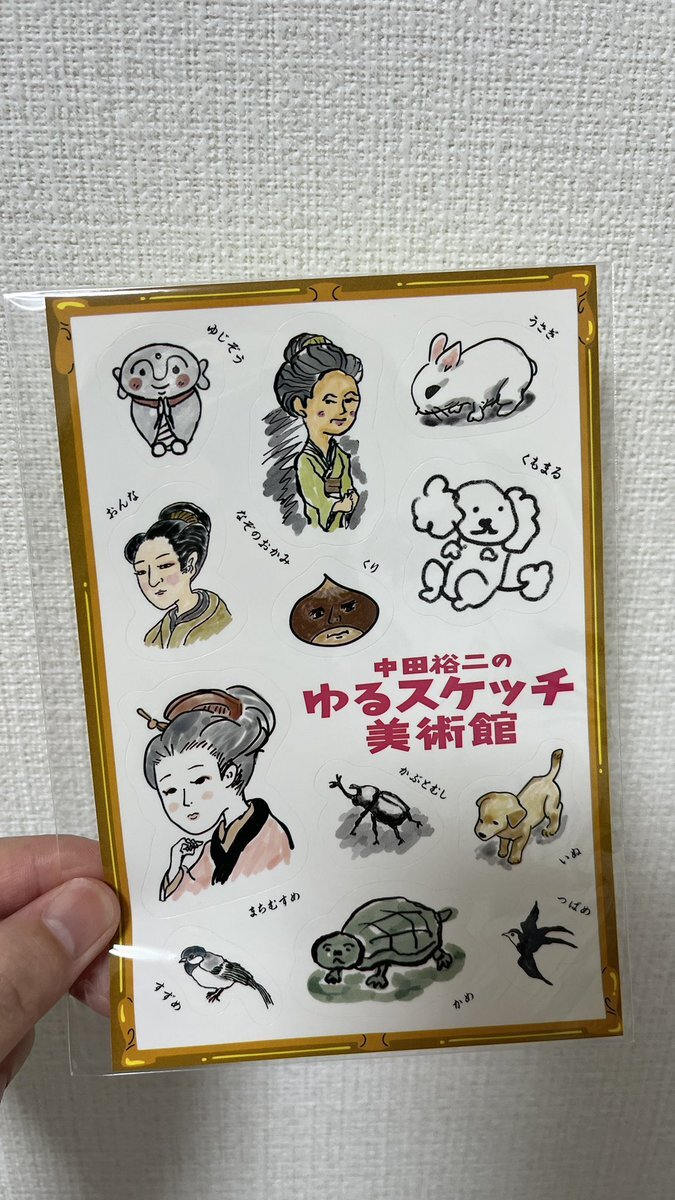 ゆじぞう
うさぎ
おんな
なぞのおかみ
くもまる
くり
中田裕二の
ゆるスケッチ
美術館
かぶとむし
いぬ
まちむすめ
すずめ
かめ
つばめ